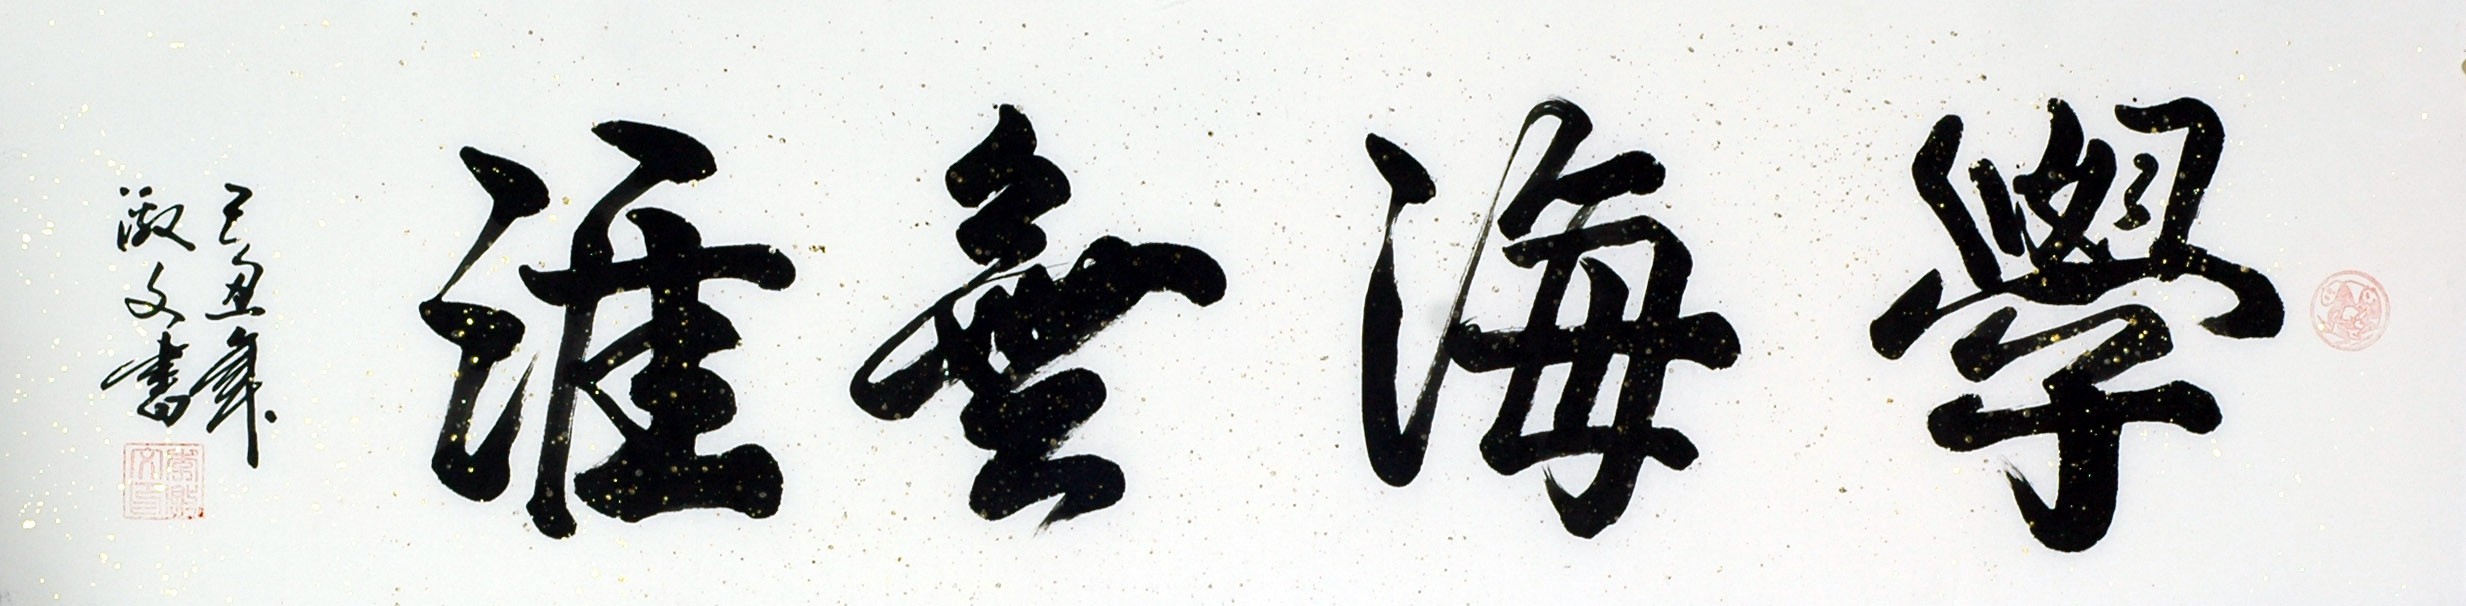 學海無涯
己丑年
激文書